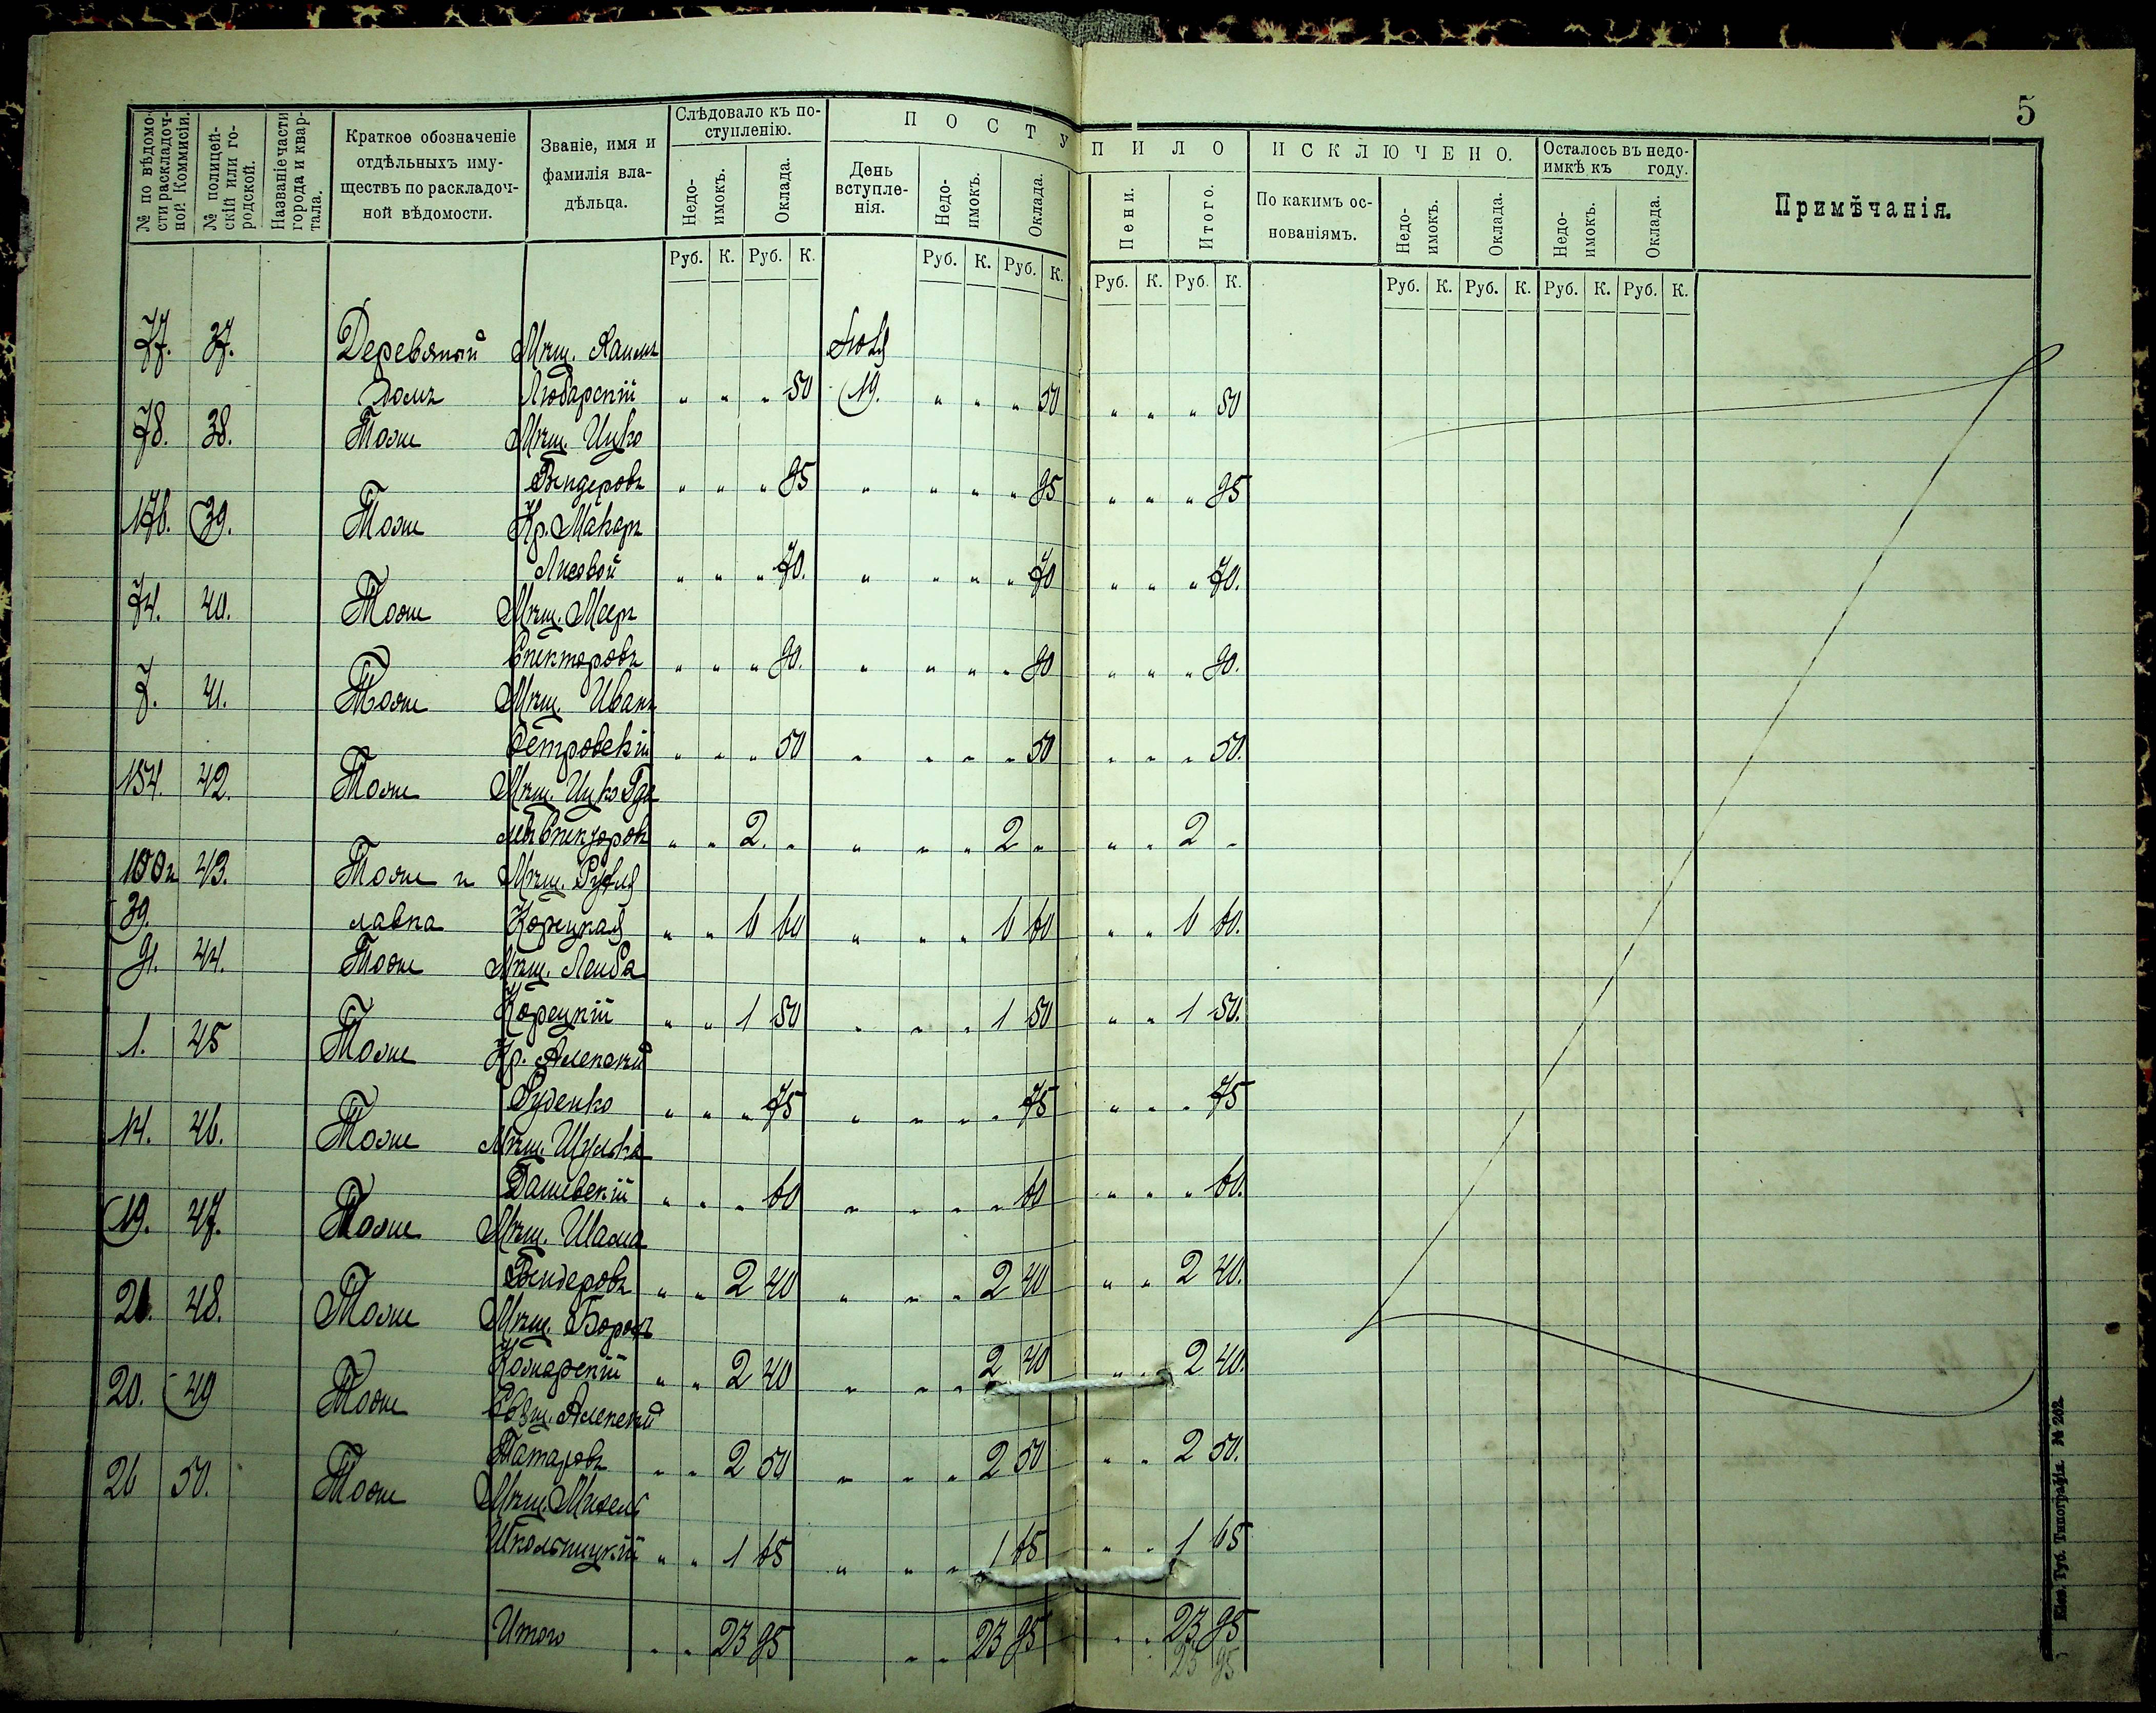 5
№ по вѣдомо-
сти раскладоч-
ной Коммисіи.
№ полицей-
скій или го-
родской.
Названіе части
города и квар-
тала.
Краткое обозначеніе
отдѣльныхъ иму-
ществъ по раскладоч-
ной вѣдомости.
Званіе, имя и
фамилія вла-
дѣльца.
Слѣдовало къ по-
ступленію.
Недо-
имокъ.
Оклада.
ПОСТУПИЛО
День
вступле-
нія.
Недо-
имокъ.
Оклада.
Пени.
Итого.
ИСКЛЮЧЕНО.
По какимъ ос-
нованіямъ.
Недо-
имокъ.
Оклада.
Осталось въ недо-
имкѣ къ году.
Недо-
имокъ.
Оклада.
Примѣчанія.
Руб. К. Руб. К. Руб. К. Руб. К. Руб. К. Руб. К. Руб. К. Руб. К. Руб. К. Руб. К.
77. 37. Деревяный Мѣщ. Хаимъ
домъ Любарскій " " " 50 19. " " " 50 " " " 50
78. 38. Тоже Мѣщ. Ицко
Бендеровъ " " " 95 " " " " 95 " " " 95
176. 39. Тоже Кр. Макаръ
Лисовой " " " 70. " " " " 70 " " " 70.
74. 40. Тоже Мѣщ. Мееръ
Спекторовъ " " " 90. " " " " 90 " " " 90.
7. 41. Тоже Мѣщ. Иванъ
Петровскій " " " 50 " " " " 50 " " " 50.
154. 42. Тоже Мѣщ. Ицко
" " 2. " " " " 2 " " " 2 "
43. Тоже и Мѣщ.
39. лавка Корецкая " " 6 60 " " " 6 60 " " 6 60.
91. 44. Тоже Мѣщ. Лейба
Корецкій " " 1 50 " " " 1 50 " " 1 50.
1. 45 Тоже Кр. Алексѣй
Руденко " " " 75 " " " " 75 " " " 75
14. 46. Тоже Мѣщ. Шулька
Дашевскій " " " 60 " " " " 60 " " " 60.
19. 47. Тоже Мѣщ. Шама
Бендеровъ " " 2 40 " " " 2 40 " " 2 40.
21. 48. Тоже Мѣщ. Борохъ
Комарскій " " 2 40 " " " 2 40 " " 2 40.
20. 49 Тоже Алексѣй
Татаровъ " " 2 50 " " " 2 50 " " 2 50.
26 50. Тоже Мѣщ.
Школьницкій " " 1 65 " " " 1 65 " " 1 65
Итого " " 23 95 " " 23 95 " " 23 95
23 95
Кіев. Губ. Типографія. № 202